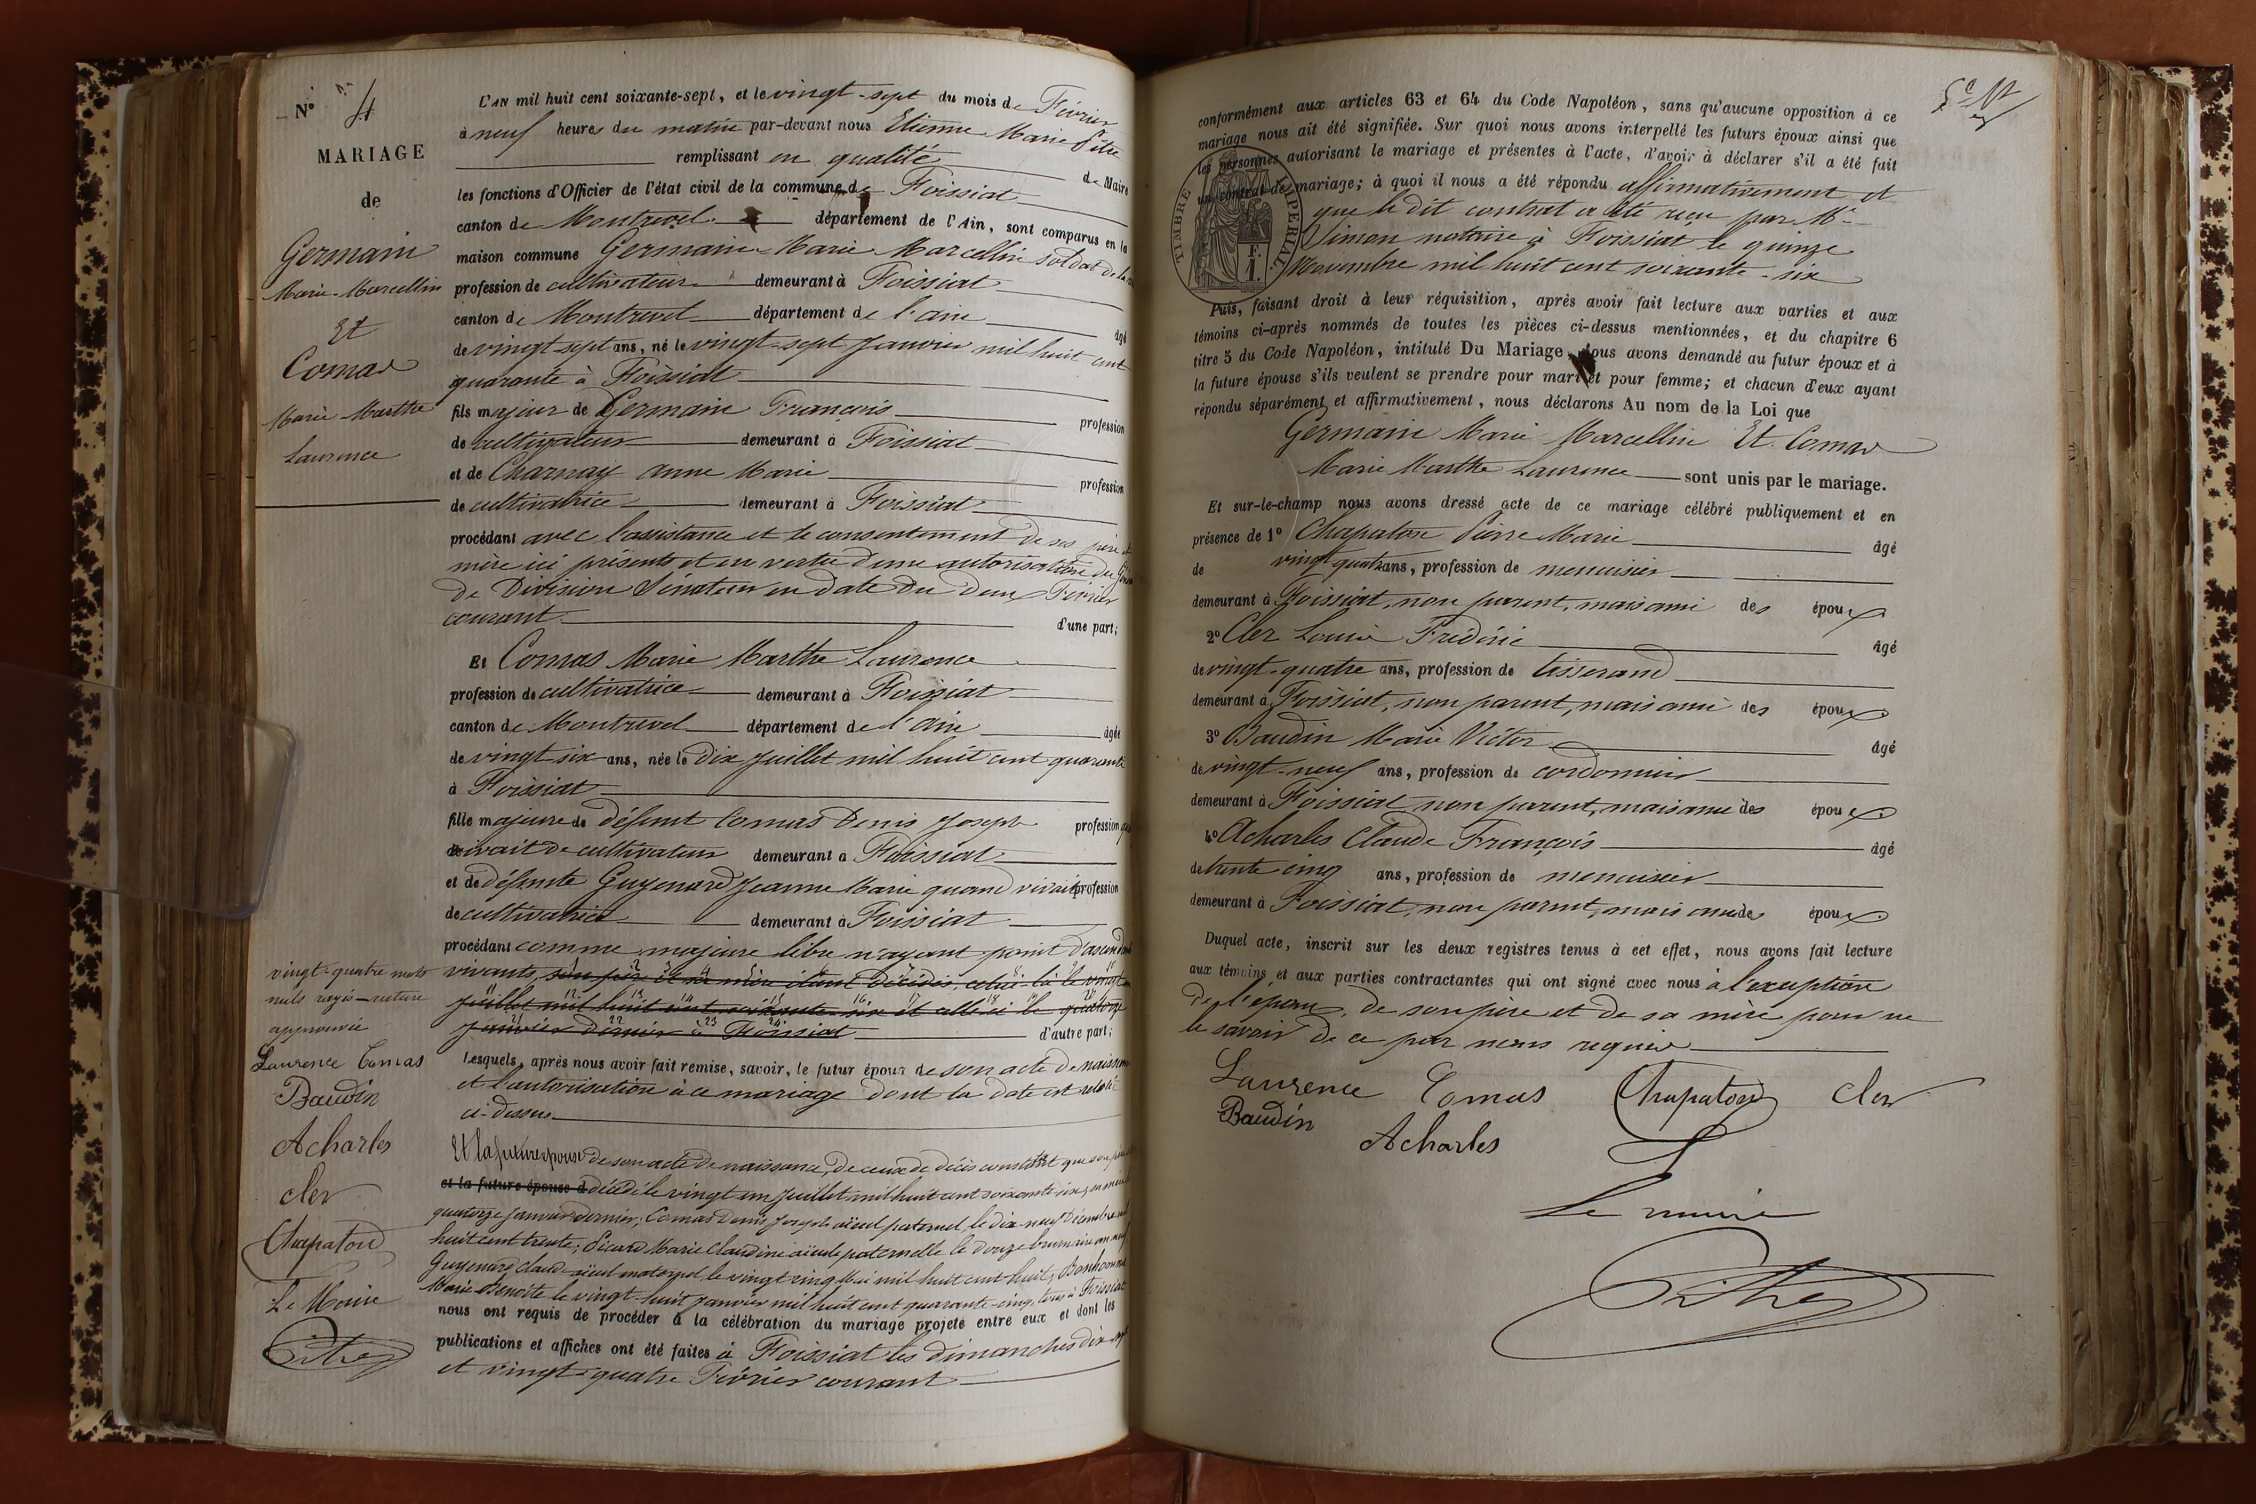 N° 4
MARIAGE
de
Germain
Marie-Marcellin
Et
Comas
Marie-Marthe
Laurence
L'AN mil huit cent soixante-sept, et le vingt-sept du mois de Février
à neuf heures du matin par-devant nous Etienne Marie Pitre
remplissant en qualité de Maire
les fonctions d'Officier de l'état civil de la commune de Foissiat
canton de Montrevel département de l'Ain, sont comparus en la
maison commune Germain Marie Marcellin soldat de la
profession de cultivateur demeurant à Foissiat
canton de Montrevel département de l'ain âgé
de vingt-sept ans, né le vingt-sept Janvier mil huit cent
quarante à Foissiat
fils majeur de Germain François profession
de cultivateur demeurant à Foissiat
et de Charnay anne Marie profession
de cultivatrice demeurant à Foissiat
procédant avec l'assistance et le consentement de ses père et
mère ici présents et en vertu d'une autorisation du
de Division Sénateur en date du deux Février
courant d'une part;
Et Comas Marie Marthe Laurence
profession de cultivatrice demeurant à Foissiat
canton de Montrevel département de l'ain âgée
de vingt six ans, née le dix Juillet mil huit cent quarante
à Foissiat
fille majeure de défunt Comas Denis Joseph profession
vivait de cultivateur demeurant à Foissiat
et de défunte Guyenard Jeanne Marie quand vivait profession
de cultivatrice demeurant à Foissiat
procédant comme majeure libre n'ayant point d'ascendants
vivants, son père et sa mère étant décédés, celui-là le vingt un
Juillet mil huit cent soixante-six et celle-ci le quatorze
Janvier dernier à Foissiat d'autre part;
Lesquels, après nous avoir fait remise, savoir, le futur époux de son acte de naissance
et l'autorisation à ce mariage dont la date est relatée
ci-dessus
Et la future épouse de son acte de naissance, de ceux de décès constatant que son père
et la future épouse d décédé le vingt-un Juillet mil huit cent soixante-six, sa mère le
quatorze Janvier dernier; Comas Denis Joseph aïeul paternel le dix-neuf Décembre mil
huit cent trente; Picard Marie Claudine aïeule paternelle le douze brumaire an neuf
Guyenard Claude aïeul maternel le vingt cinq Mai mil huit cent huit; Bonhomme
Marie Benoîte le vingt-huit Janvier mil huit cent quarante-cinq, tous à Foissiat
nous ont requis de procéder à la célébration du mariage projeté entre eux et dont les
publications et affiches ont été faites à Foissiat les dimanches dix-sept
et vingt-quatre Février courant
vingt-quatre mots
nuls rayés-rature
approuvée
Laurence Comas
Baudin
Acharles
Cler
Chapaton
Le Maire
Pitre
conformément aux articles 63 et 64 du Code Napoléon, sans qu'aucune opposition à ce
mariage nous ait été signifiée. Sur quoi nous avons interpellé les futurs époux ainsi que
les personnes autorisant le mariage et présentes à l'acte, d'avoir à déclarer s'il a été fait
un contrat de mariage; à quoi il nous a été répondu affirmativement et
que le dit contrat a été reçu par Me
Simon notaire à Foissiat le quinze
Novembre mil huit cent soixante-six
TIMBRE IMPÉRIAL
F.
1.
Puis, faisant droit à leur réquisition, après avoir fait lecture aux parties et aux
témoins ci-après nommés de toutes les pièces ci-dessus mentionnées, et du chapitre 6
titre 5 du Code Napoléon, intitulé Du Mariage, nous avons demandé au futur époux et à
la future épouse s'ils veulent se prendre pour mari et pour femme; et chacun d'eux ayant
répondu séparément et affirmativement, nous déclarons Au nom de la Loi que
Germain Marie Marcellin Et Comas
Marie Marthe Laurence sont unis par le mariage.
Et sur-le-champ nous avons dressé acte de ce mariage célébré publiquement et en
présence de 1° Chapaton Pierre Marie âgé
de vingt quatre ans, profession de menuisier
demeurant à Foissiat, non parent, mais ami des époux
2° Cler Louis Frédéric âgé
de vingt-quatre ans, profession de tisserand
demeurant à Foissiat, non parent, mais ami des époux
3° Baudin Marie Victor âgé
de vingt-neuf ans, profession de cordonnier
demeurant à Foissiat, non parent, mais ami des époux
4° Acharles Claude François âgé
de trente cinq ans, profession de menuisier
demeurant à Foissiat, non parent, mais ami des époux
Duquel acte, inscrit sur les deux registres tenus à cet effet, nous avons fait lecture
aux témoins et aux parties contractantes qui ont signé avec nous à l'exception
de l'époux, de son père et de sa mère pour ne
le savoir de ce par nous requis
Laurence Comas Chapaton Cler
Baudin Acharles
Le maire
Pitre